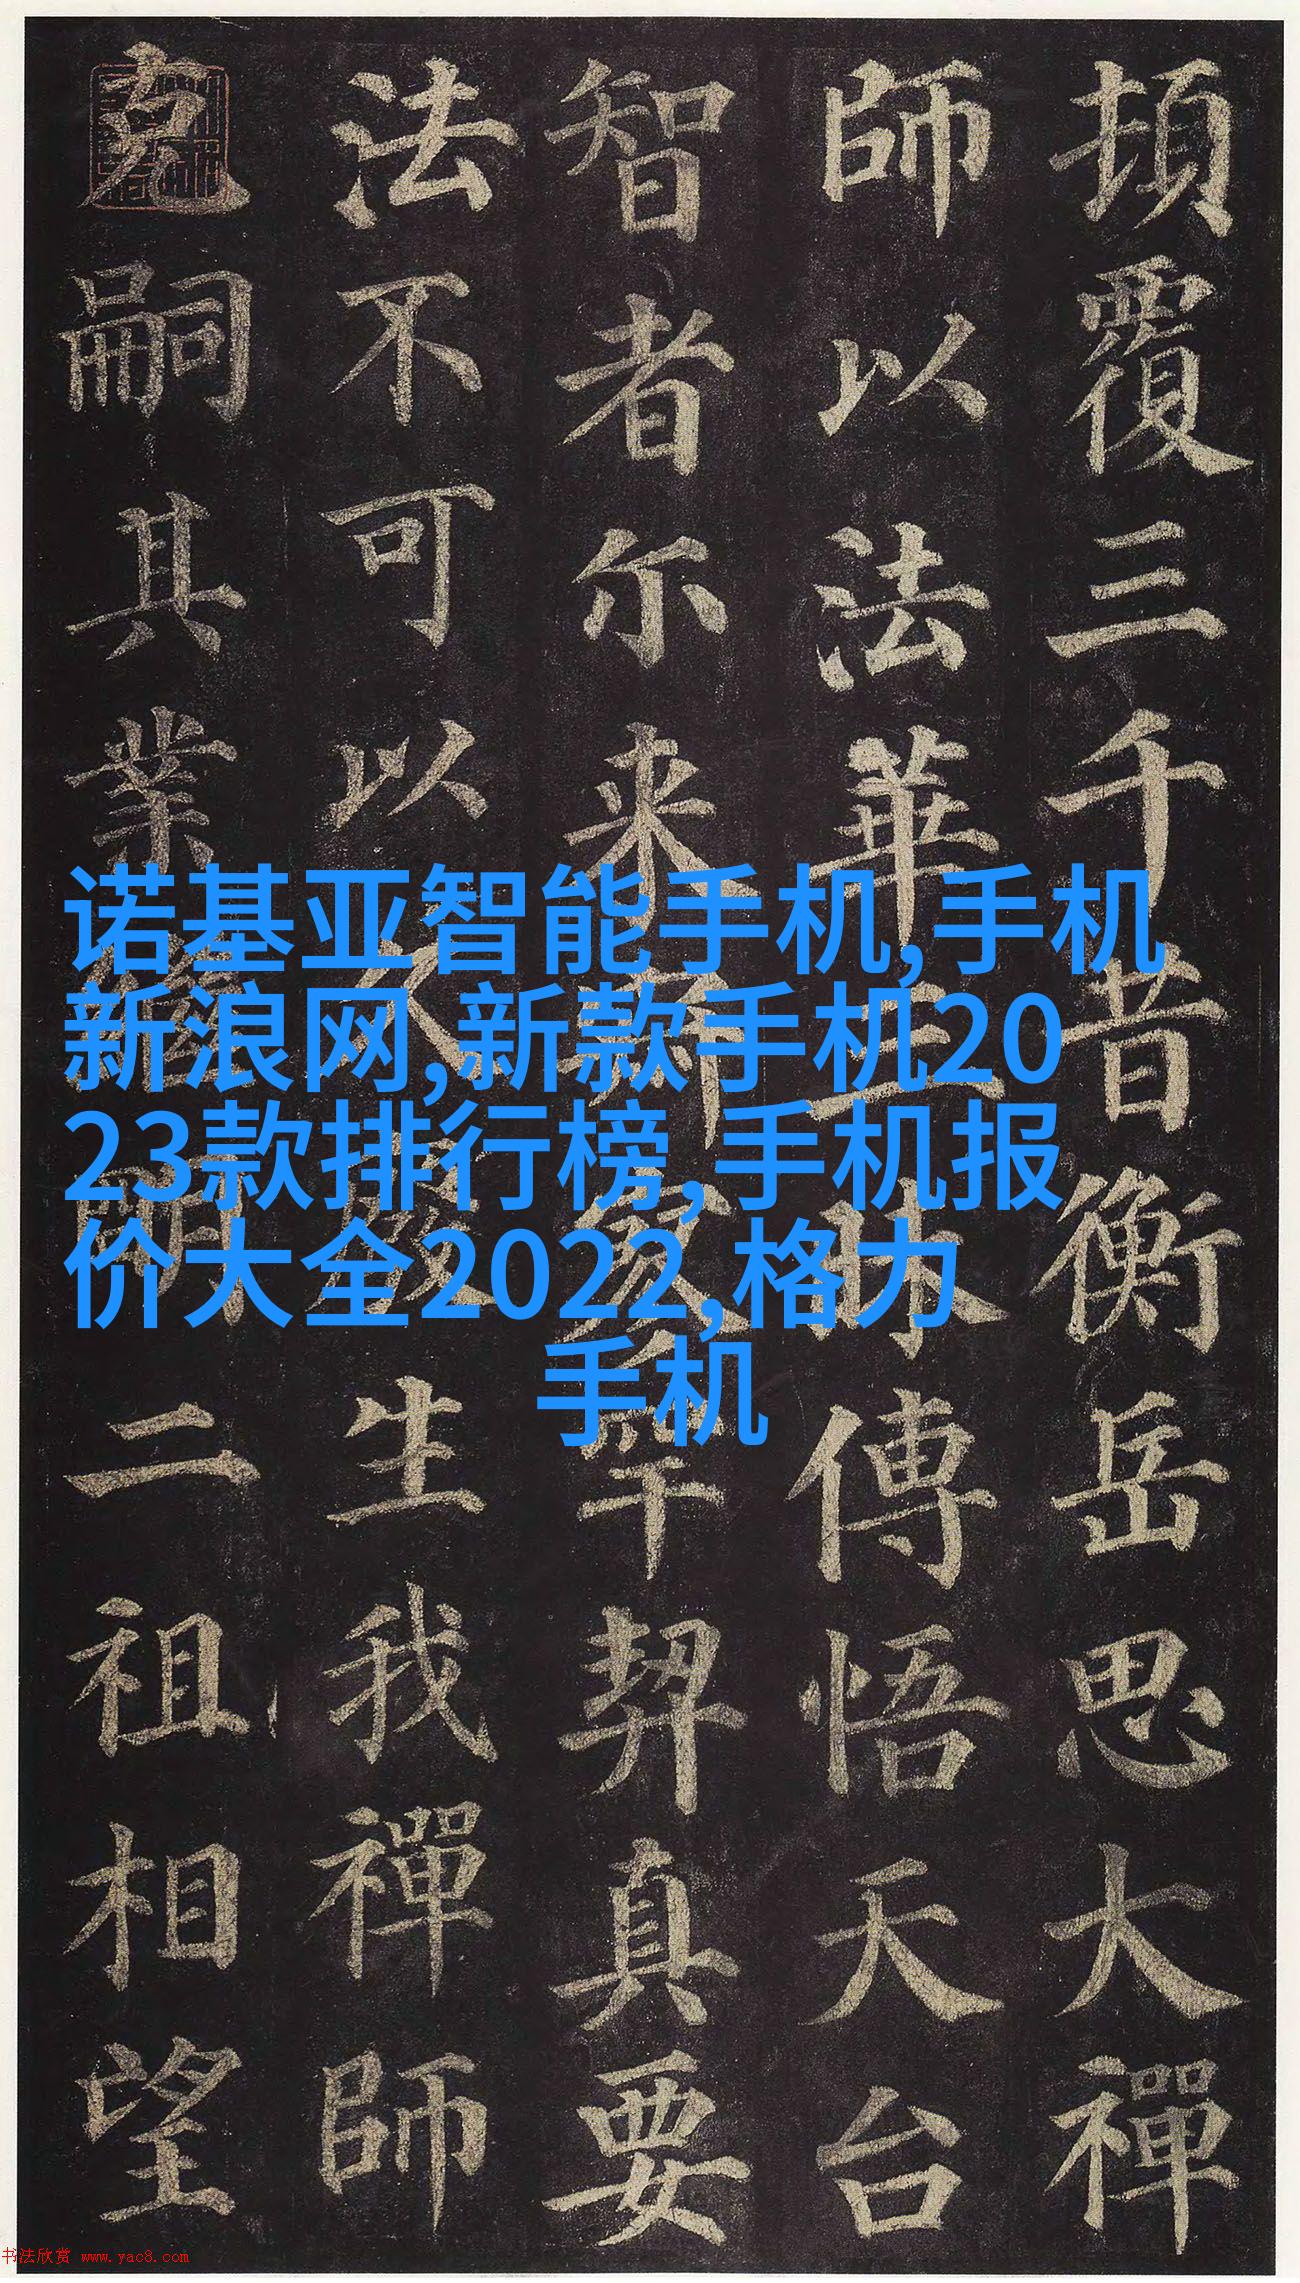 頂覆三千昔衡岳思大禪
師以法華三昧傳悟天台
智者尔来寂寥罕契真要
法不可以久廢生我禪師
克嗣其業繼明二祖相望
诺基亚智能手机,手机
新浪网,新款手机20
23款排行榜,手机报
价大全2022,格力
手机
书法欣赏 www.yac8.com